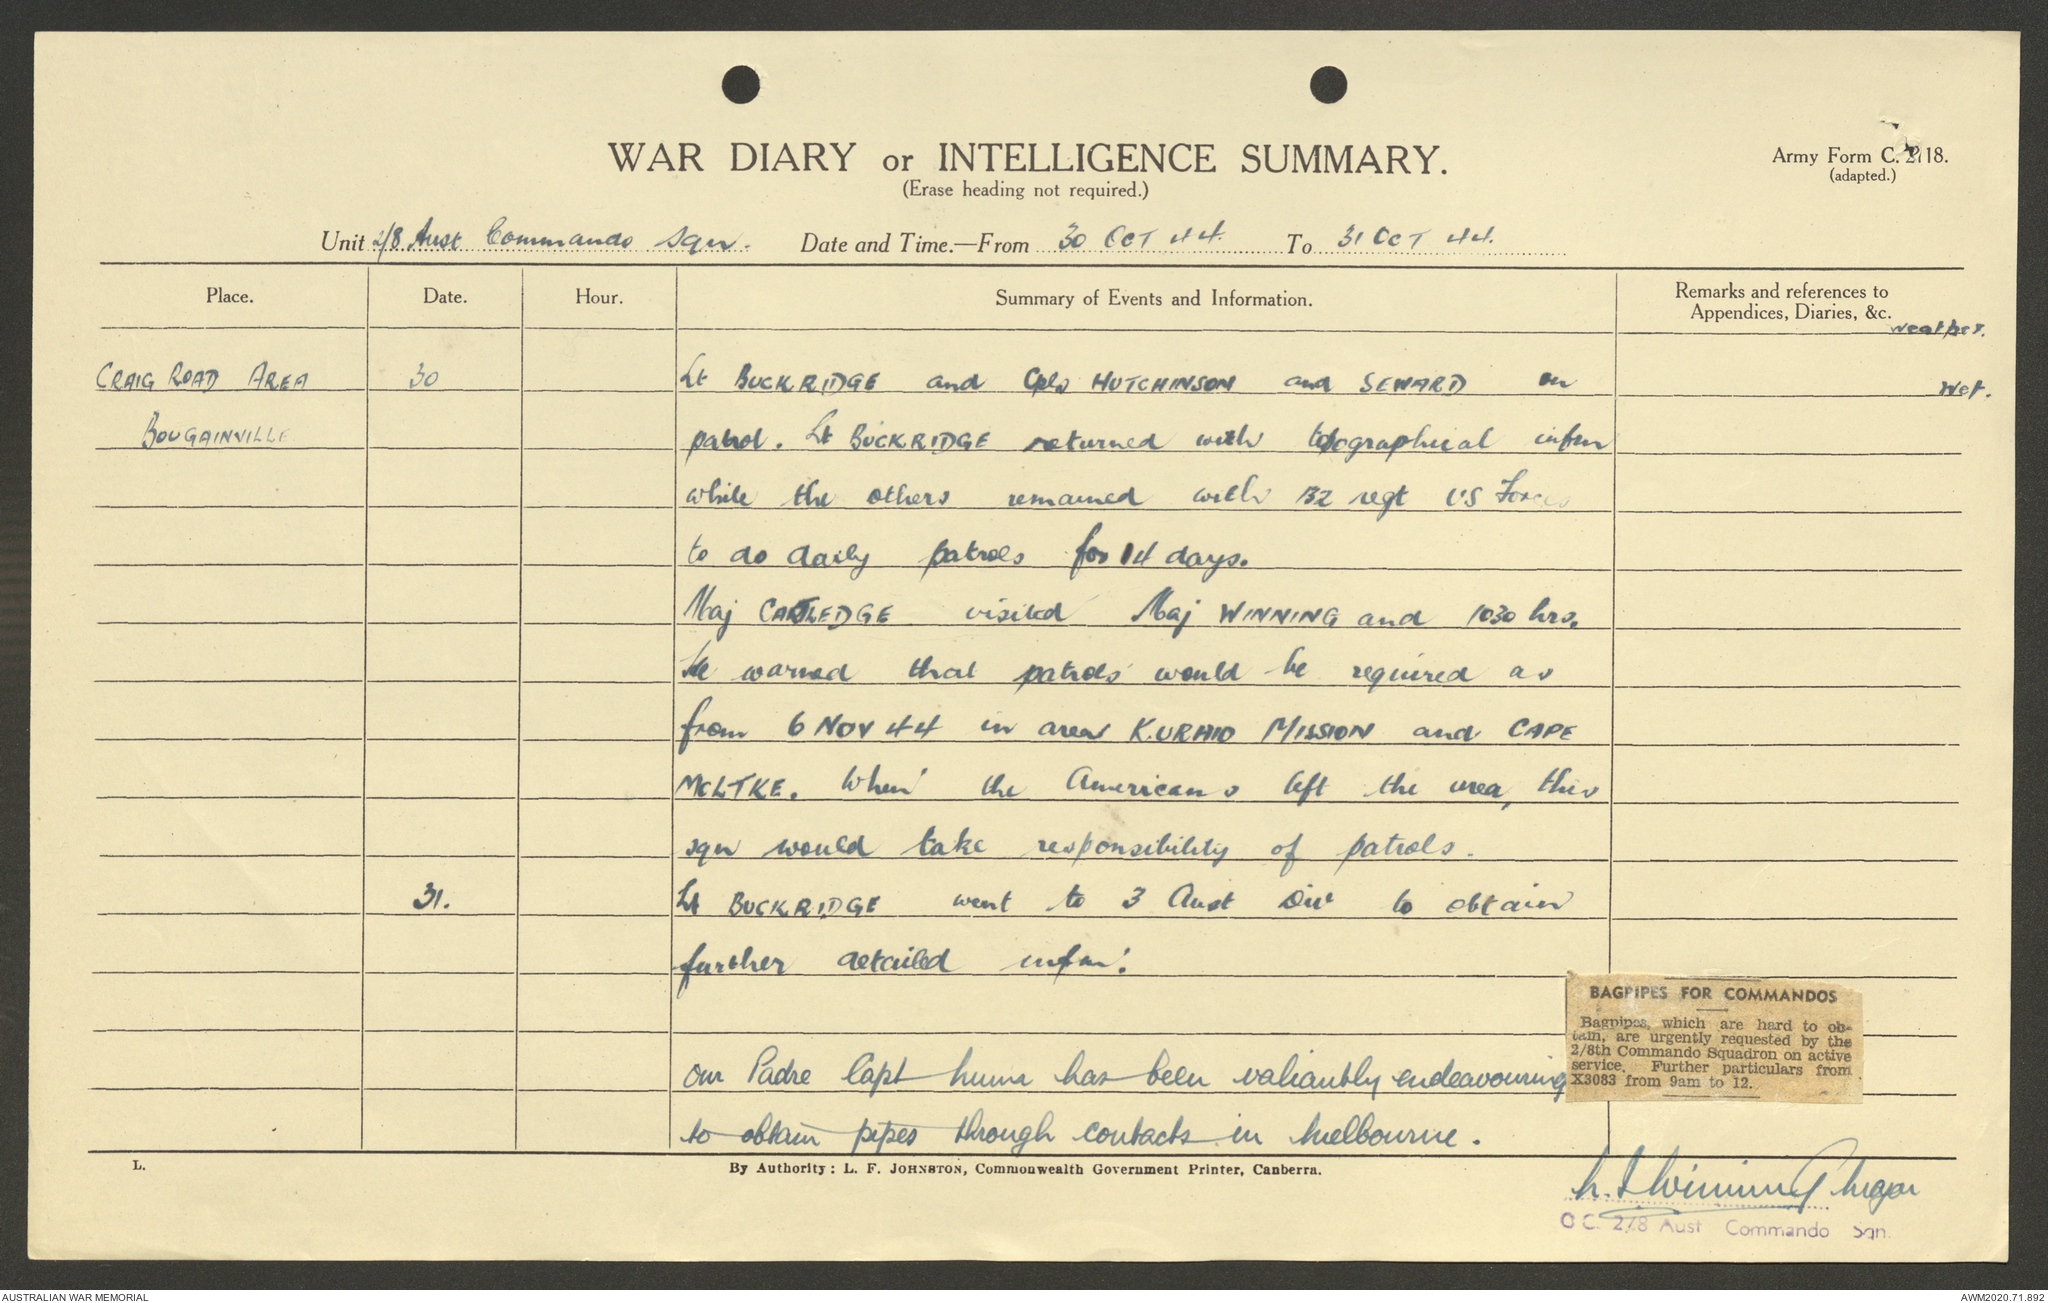 WAR DIARY or INTELLIGENCE SUMMARY.
(Erase heading not required.)
Army Form C. 2118.
(adapted.)
Unit 2/8 Aust Commando Sqn. Date and Time.—From 30 OCT 44. To 31 OCT 44.
Place. Date. Hour. Summary of Events and Information. Remarks and references to Appendices, Diaries, &c.
weather.
CRAIG ROAD AREA 30 Lt BUCKRIDGE and Cpls HUTCHINSON and SEWARD on wet.
BOUGAINVILLE patrol. Lt BUCKRIDGE returned with topographical infm
while the others remained with 132 regt US Forces
to do daily patrols for 14 days.
Maj CARTLEDGE visited Maj WINNING and 1030 hrs.
He warned that patrols would be required as
from 6 NOV 44 in area KURAIO MISSION and CAPE
MOLTKE. When the Americans left the area, this
sqn would take responsibility of patrols.
31. Lt BUCKRIDGE went to 3 Aust Div to obtain
further detailed infm.
BAGPIPES FOR COMMANDOS
Bagpipes, which are hard to ob-
tain, are urgently requested by the
2/8th Commando Squadron on active
service. Further particulars from
X3083 from 9am to 12.
Our Padre Capt Hume has been valiantly endeavouring
to obtain pipes through contacts in Melbourne.
L.
By Authority: L. F. JOHNSTON, Commonwealth Government Printer, Canberra.
N. I. Winning Major
OC. 2/8 Aust Commando Sqn.
AUSTRALIAN WAR MEMORIAL
AWM2020.71.892